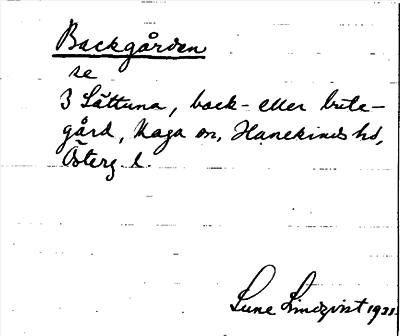 Backgården
se
3 Sättuna, back- eller bite-
gård, Kaga sn, Hanekinds hd,
Österg. l.
Sune Lindqvist 1921